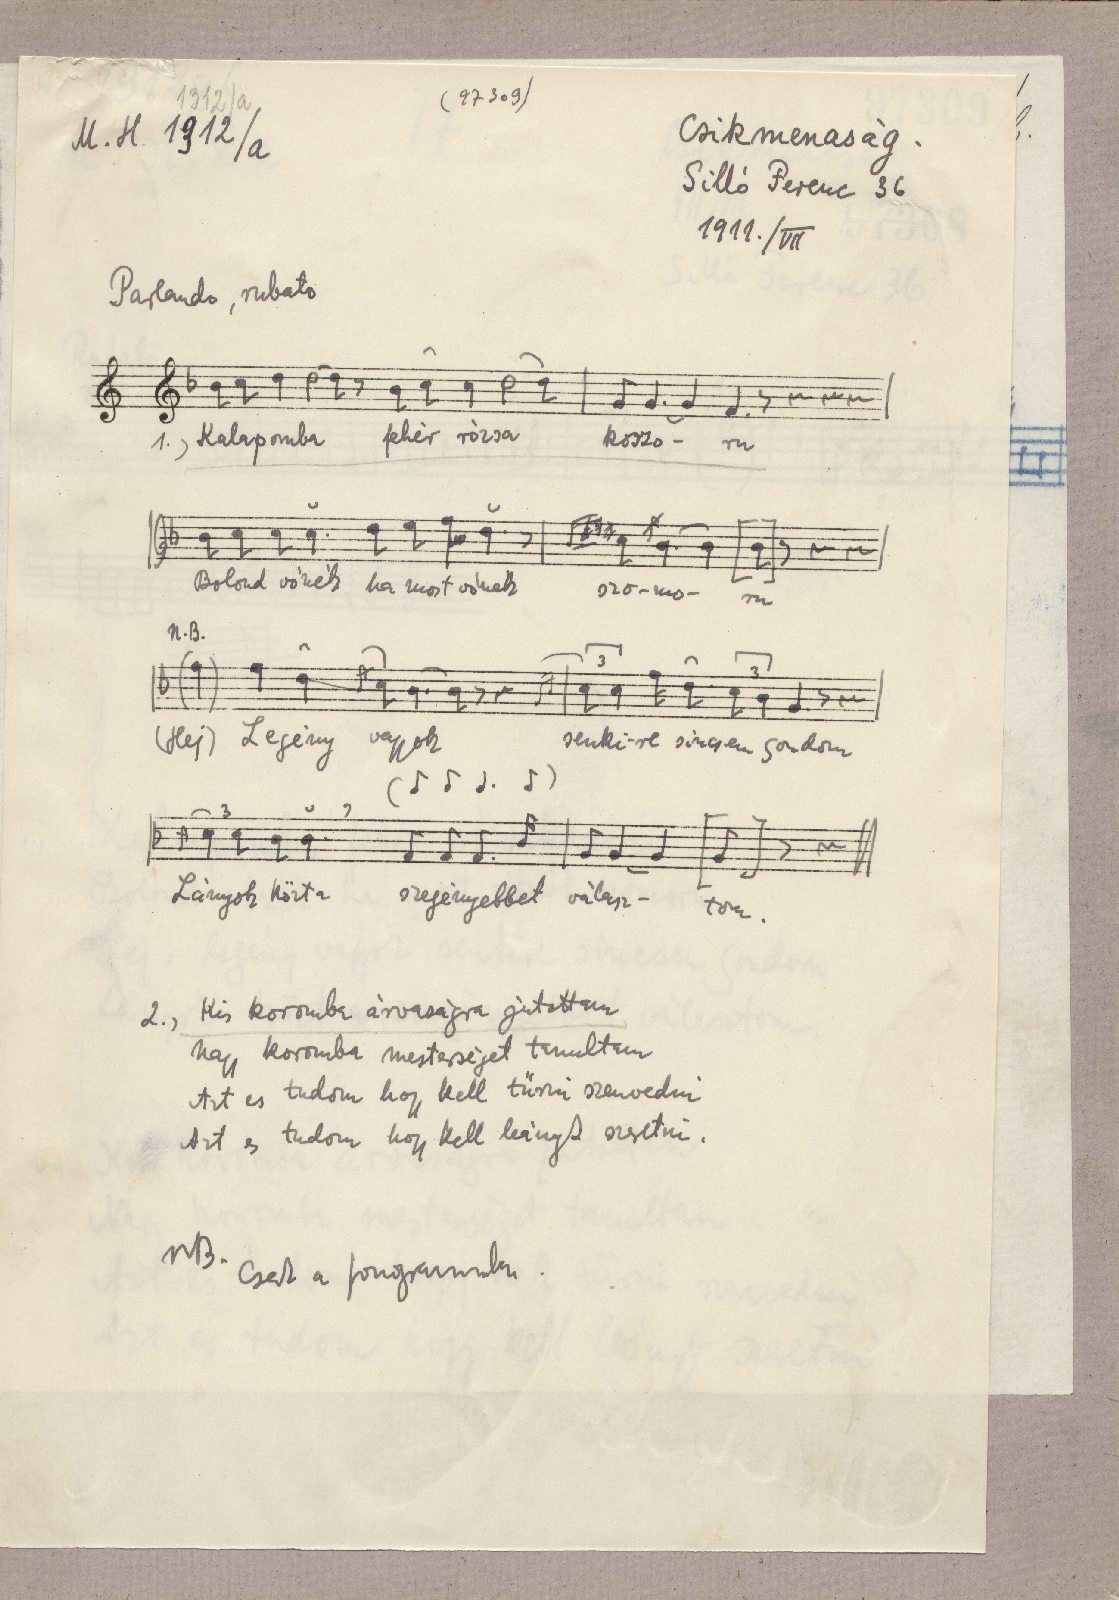 1912/a
(97309)
M. H. 1912/a
Csikmenaság.
Silló Ferenc 36
1911./VII
Parlando, rubato
1., Kalapomba fehér rózsa koszo- ru
Bolond vónék ha most vónék szo-mo- ru
N.B.
(Hej) Legény vagyok senki-re sincsen gondom
3 3
3
Lányok közta szegényebbet válasz- tom.
2., Kis koromba árvaságra jutottam
Nagy koromba mesterséget tanultam
Azt es tudom hogy kell türni szenvedni
Azt es tudom hogy kell leányt szeretni.
NB. Csak a fonogrammban.